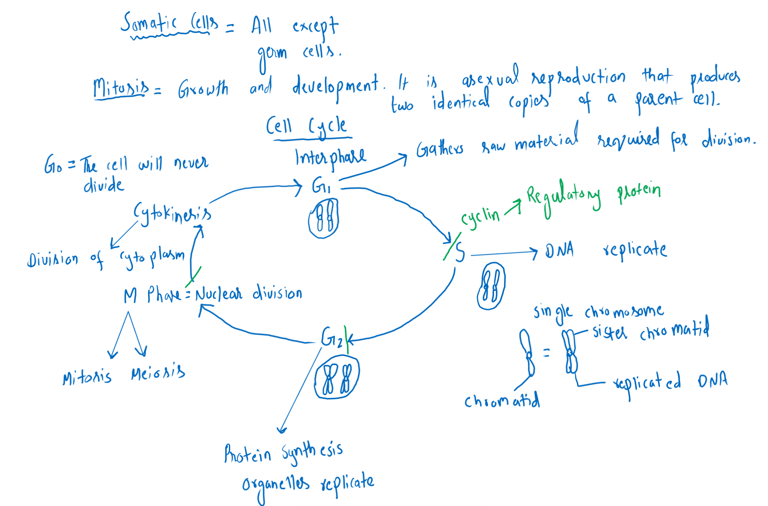 Somatic Cells = All except
germ cells.
Mitosis = Growth and development. It is asexual reproduction that produces
two identical copies of a parent cell.
Cell Cycle
Interphase
Gathers raw material required for division.
G0 = The cell will never
divide
G1
Cytokinesis
cyclin → Regulatory protein
S
DNA replicate
Division of cytoplasm
M Phase = Nuclear division
single chromosome
sister chromatid
=
G2
Mitosis Meiosis
replicated DNA
chromatid
Protein Synthesis
Organelles replicate